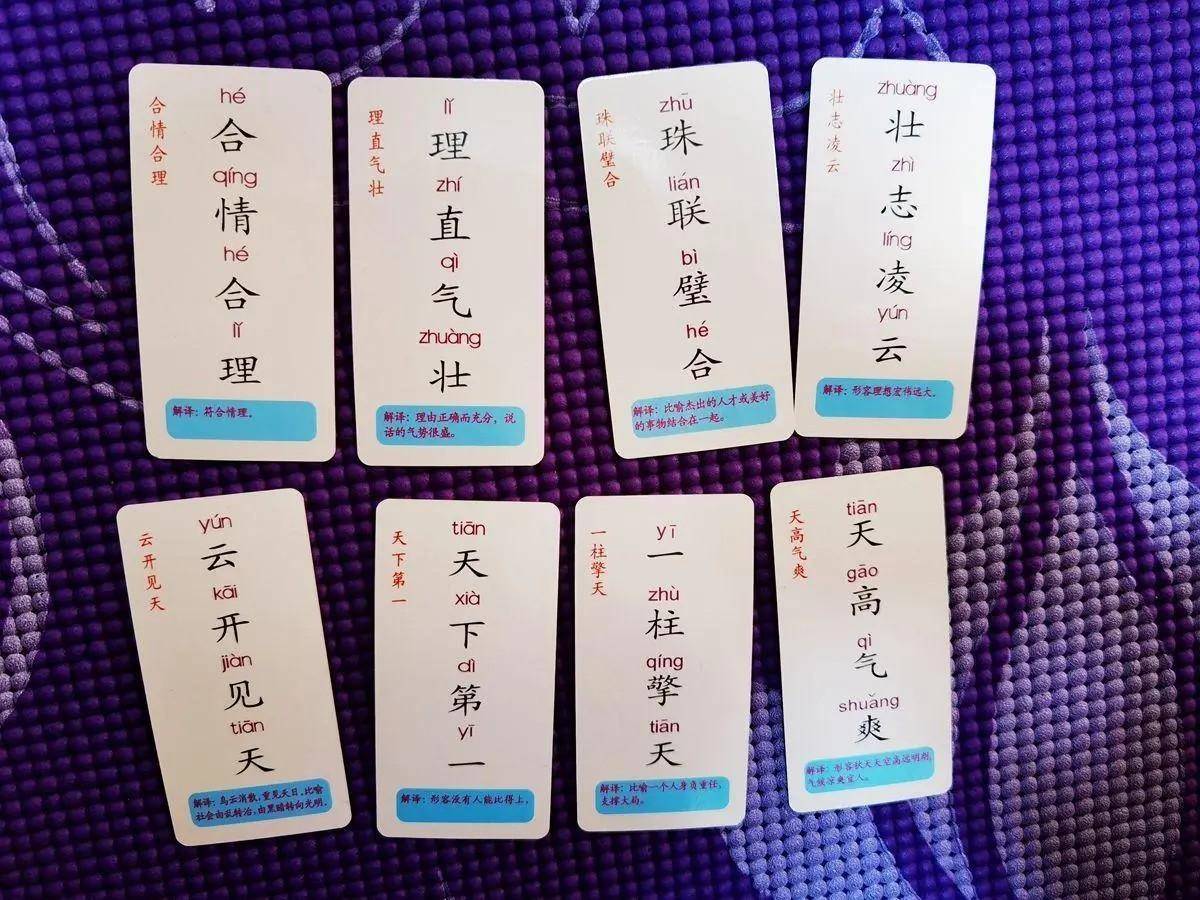 合情合理
hé
合
qíng
情
hé
合
lǐ
理
解译：符合情理。
理直气壮
lǐ
理
zhí
直
qì
气
zhuàng
壮
解译：理由正确而充分，说
话的气势很盛。
珠联璧合
zhū
珠
lián
联
bì
璧
hé
合
解译：比喻杰出的人才或美好
的事物结合在一起。
壮志凌云
zhuàng
壮
zhì
志
líng
凌
yún
云
解译：形容理想宏伟远大。
云开见天
yún
云
kāi
开
jiàn
见
tiān
天
解译：乌云消散，重见天日，比喻
社会由乱转治，由黑暗转向光明。
天下第一
tiān
天
xià
下
dì
第
yī
一
解译：形容没有人能比得上，
一柱擎天
yī
一
zhù
柱
qíng
擎
tiān
天
解译：比喻一个人身负重任，
支撑大局。
天高气爽
tiān
天
gāo
高
qì
气
shuǎng
爽
解译：形容秋天天空高远明朗，
气候凉爽宜人。